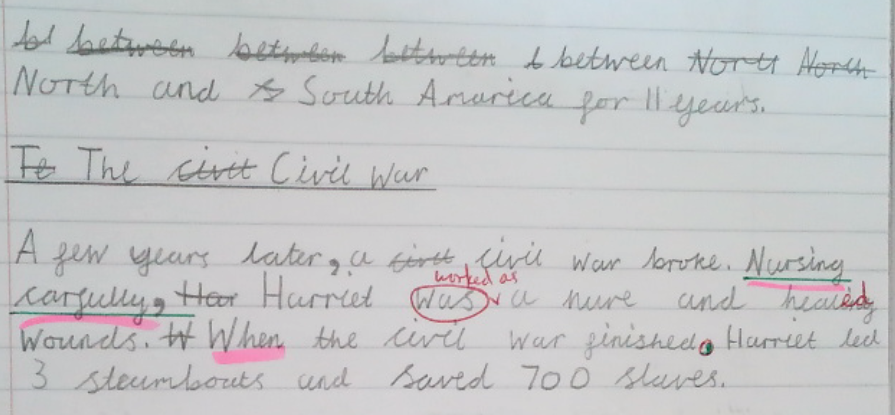 between between between between North North
North and South Amarica for 11 years.
The civil Civil War
A few years later, a civil civil war broke. Nursing
worked as
cargully, Har Harriet was a nure and healed
wounds. When the civil war finished. Harriet led
3 steambouts and saved 700 slaves.